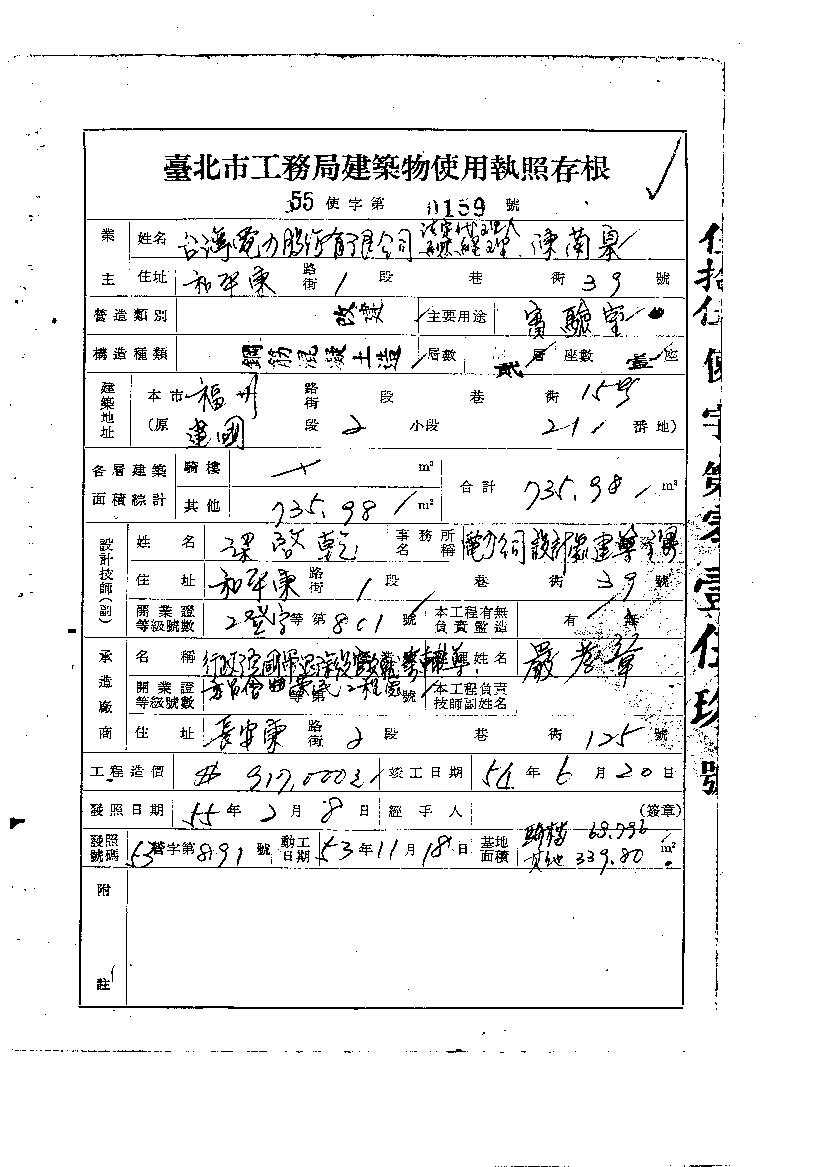 臺北市工務局建築物使用執照存根
55 使字第 0159 號
業主 姓名 台灣電力股份有限公司 法定代理人 陳蘭皋
住址 和平東 路街 1 段 巷 街 39 號
營造類別 改建 主要用途 實驗室
構造種類 鋼筋混凝土造 層數 貳 層 座數 壹 座
建築地址 本市 福州 路街 段 巷 街 15號
(原 建國 段 2 小段 21 番地)
各層建築面積綜計 騎樓 m² 合計 735.98 m²
其他 735.98 m²
設計技師(副) 姓名 梁啓乾 事務所名稱 電力公司設計處建築
住址 和平東 路街 1 段 巷 街 39 號
開業證等級號數 工登字等第 801 號 本工程有無負責監造 有 無
承造廠商 名稱 行政院國軍退除役官兵就業輔導 姓名 嚴孝章
委員會 工程處
開業證等級號數 等第 號 本工程負責技師副姓名
住址 長安東 路街 2 段 巷 街 125 號
工程造價 # 917,000元 竣工日期 54 年 6 月 20 日
發照日期 55 年 2 月 8 日 經手人 (簽章)
發照號碼 53 營字第 891 號 動工日期 53 年 11 月 18 日 基地面積 騎樓 68.796 m²
其他 339.80
附註
伍拾伍使字第零壹伍玖號